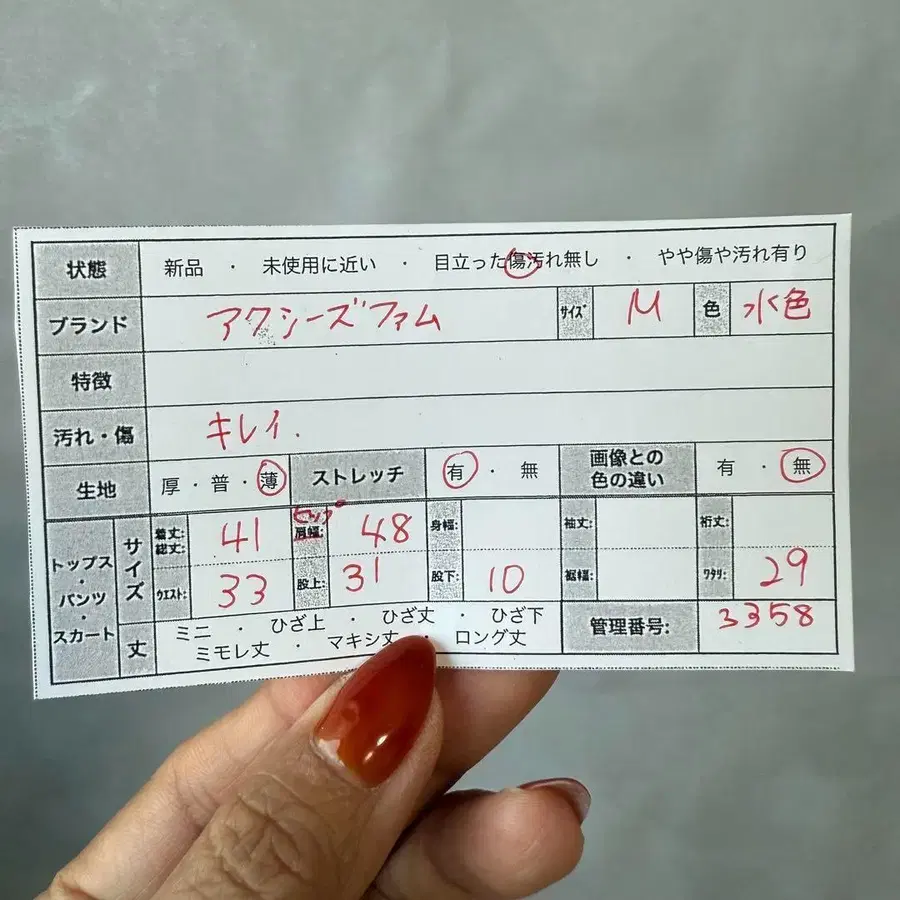 状態 新品 ・ 未使用に近い ・ 目立った傷汚れ無し ・ やや傷や汚れ有り
ブランド アクシーズファム サイズ M 色 水色
特徴
汚れ・傷 キレイ.
生地 厚・普・薄 ストレッチ 有・無 画像との色の違い 有・無
トップス・パンツ・スカート サイズ 着丈:総丈: 41 ヒップ 肩幅: 48 身幅: 袖丈: 裄丈:
ウエスト: 33 股上: 31 股下: 10 裾幅: ワタリ: 29
丈 ミニ ・ ひざ上 ・ ひざ丈 ・ ひざ下 管理番号: 3358
ミモレ丈 ・ マキシ丈 ・ ロング丈